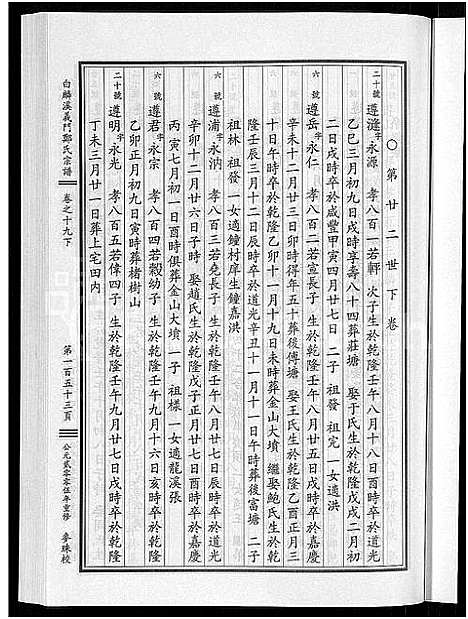 ○第廿二世下卷
二十號 遵漨字永源 孝八百一若軒次子生於乾隆壬午八月十八日酉時卒於道光
乙巳三月初九日戌時享壽八十四葬莊塘 娶于氏生於乾隆戊戌二月初
二日戌時卒於咸豐甲寅四月廿七日 二子 祖發 祖完 一女適洪
六號 遵岳字永仁 孝八百二若宣長子 生於乾隆壬午八月廿五日戌時卒於嘉慶
辛未十二月廿三日卯時得年五十葬後傅塘 娶王氏生於乾隆乙酉正月三
十日午時卒於乾隆乙卯十一月十九日未時葬金山大墳 繼娶鮑氏生於乾
隆壬辰三月十二日辰時卒於道光辛丑十一月十一日午時葬後富塘 二子
祖林 祖發 一女適鐘村庠生鐘嘉洪
六號 遵浦字永汭 孝八百三若堯長子 生於乾隆壬午八月廿七日辰時卒於嘉慶
辛卯十二月廿六日子時 娶趙氏生於乾隆戊子正月廿七日戌時卒於嘉慶
丙寅七月初一日酉時俱葬金山大墳 一子 祖樣 一女適龍溪張
六號 遵君字永宗 孝八百四若穀幼子 生於乾隆壬午九月十六日亥時卒於乾隆
乙卯正月初九日寅時葬楮樹山
二十號 遵明字永光 孝八百五若偉四子 生於乾隆壬午九月廿七日戌時卒於乾隆
丁未三月廿一日葬上宅田内
白麟溪義門鄭氏宗譜
卷之十九下
第一百五十三頁
公元貳零零伍年重修
麥珠校